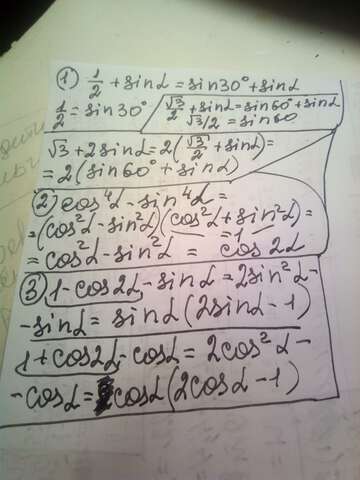 1) 1/2 + sinα = sin30° + sinα
1/2 = sin30° / √3/2 + sinα = sin60° + sinα
√3/2 = sin60
√3 + 2sinα = 2(√3/2 + sinα) =
= 2(sin60° + sinα)
2) cos⁴α - sin⁴α =
= (cos²α - sin²α)(cos²α + sin²α) =
=1
= cos²α - sin²α = cos2α
3) 1 - cos2α - sinα = 2sin²α -
- sinα = sinα(2sinα - 1)
1 + cos2α - cosα = 2cos²α -
- cosα = cosα(2cosα - 1)